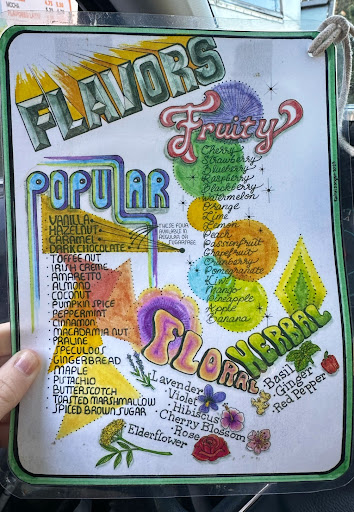 MOCHA
FLAVORS
Fruity
Cherry
Strawberry
Blueberry
Raspberry
Blackberry
Watermelon
Orange
Lime
Lemon
Peach
Passionfruit
Grapefruit
Cranberry
Pomegranate
Kiwi
Mango
Pineapple
Apple
Banana
POPULAR
VANILLA
HAZELNUT
CARAMEL
DARK CHOCOLATE
THESE FOUR
AVAILABLE IN
REGULAR OR
SUGARFREE
TOFFEE NUT
IRISH CREME
AMARETTO
ALMOND
COCONUT
PUMPKIN SPICE
PEPPERMINT
CINNAMON
MACADAMIA NUT
PRALINE
SPECULOUS
GINGERBREAD
MAPLE
PISTACHIO
BUTTERSCOTCH
TOASTED MARSHMALLOW
SPICED BROWN SUGAR
FLORAL
Lavender
Violet
Hibiscus
Cherry Blossom
Rose
Elderflower
HERBAL
Basil
Ginger
Red Pepper